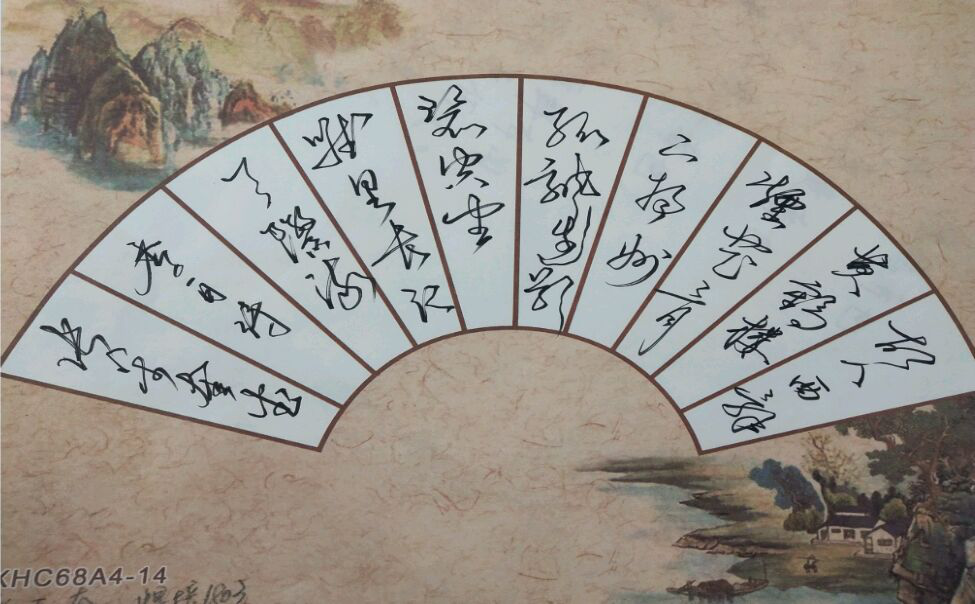 故人西辞
黄鹤楼
煙花三月
下扬州
孤帆远影
碧空尽
唯见长江
天际流
李白诗
XHC68A4-14